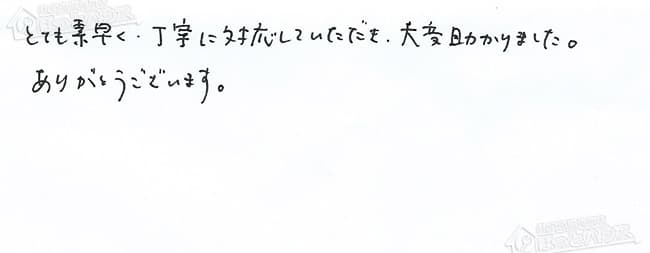 とても素早く、丁寧に対応していただき、大変助かりました。
ありがとうございます。